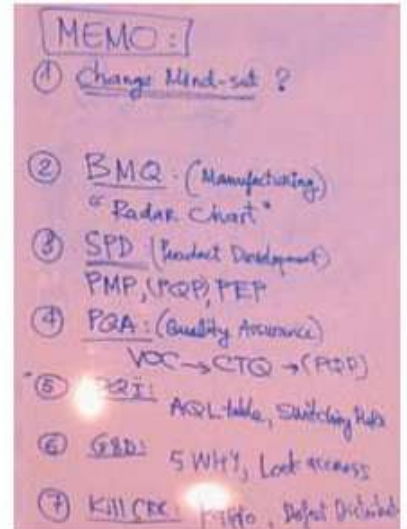 MEMO :
① Change Mind-set ?
② BMQ : (Manufacturing)
"Radar Chart"
③ SPD (Product Development)
PMP, (PQP), PEP
④ PQA : (Quality Assurance)
VOC → CTQ → (PQP)
⑤ PQI :
AQL-table, Switching Rule
⑥ G8D :
5 WHY, Look across
⑦ Kill CRK : , Defect